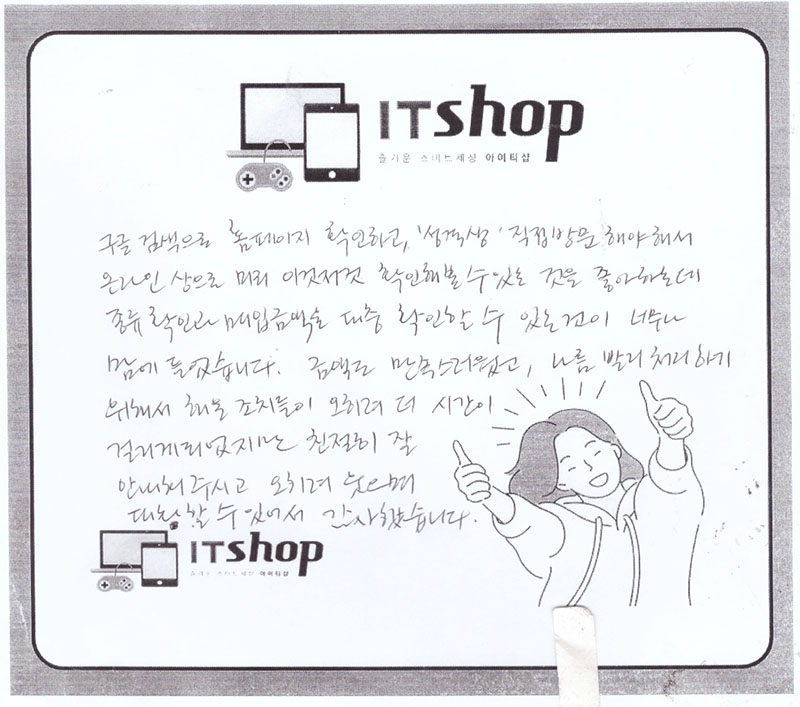 ITshop
즐거운 스마트세상 아이티샵
구글 검색으로 홈페이지 확인하고, '성격상' 직접방문 해야해서
온라인 상으로 미리 이것저것 확인해볼 수 있는 것을 좋아하는데
종류 확인과 매입금액을 대충 확인할 수 있는것이 너무나
맘에 들었습니다. 금액도 만족스러웠고, 나름 빨리 처리하기
위해서 해본 조치들이 오히려 더 시간이
걸리게되었지만 친절히 잘
안내해 주시고 오히려 웃으며
대화 할 수 있어서 감사했습니다.
ITshop
즐거운 스마트세상 아이티샵